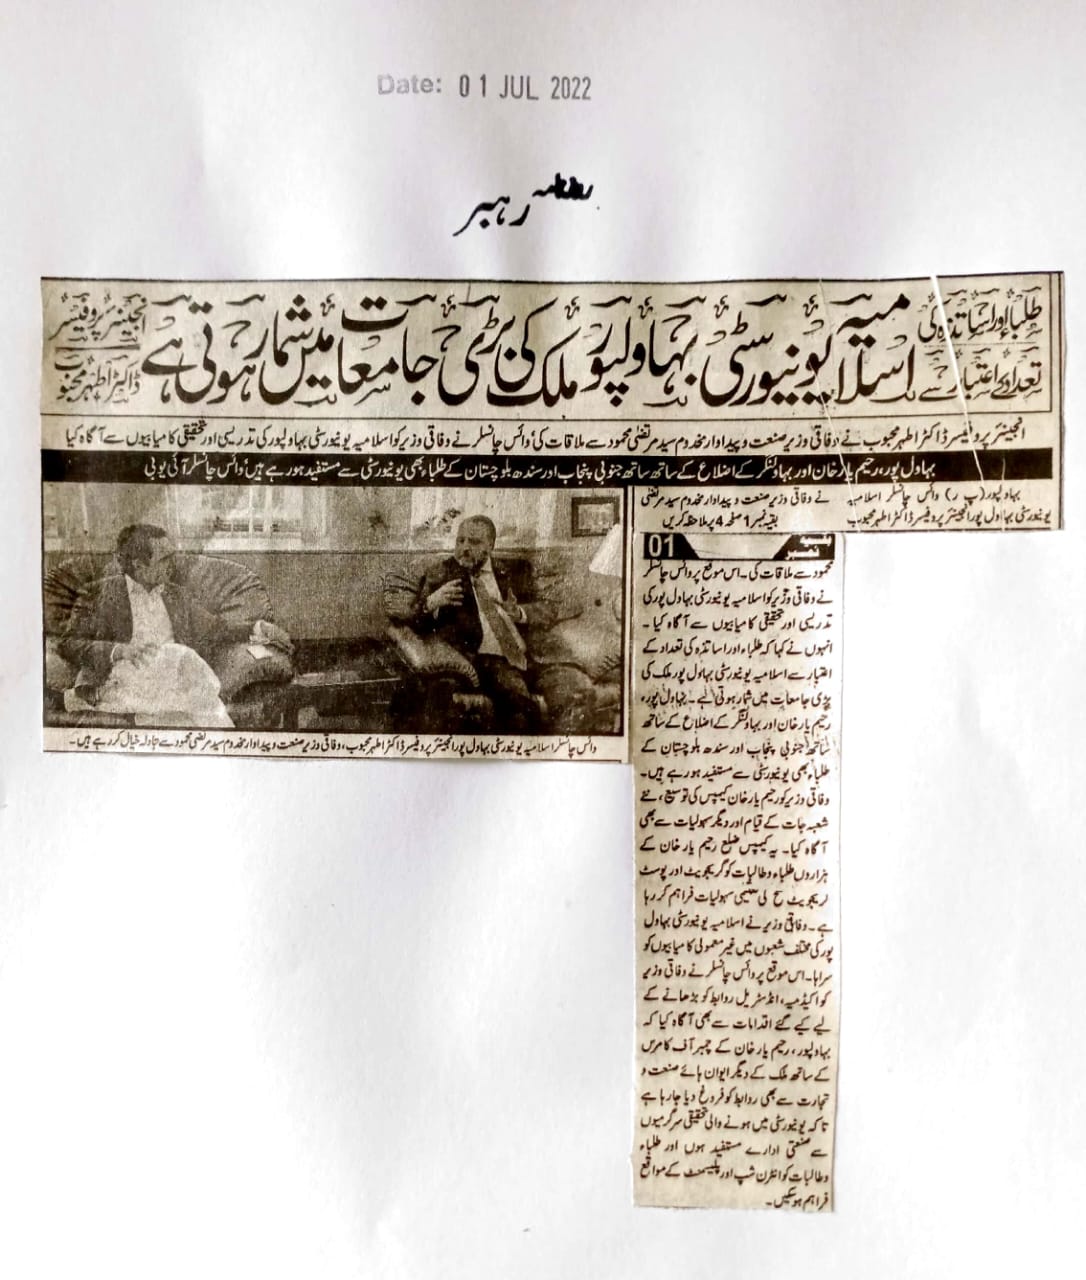 Date: 01 JUL 2022
روزنامہ رہبر
طلباء اور اساتذہ کی
تعداد کے اعتبار سے
اسلامیہ یونیورسٹی بہاولپور ملک کی بڑی جامعات میں شمار ہوتی ہے
انجینئر پروفیسر
ڈاکٹر اطہر محبوب
انجینئر پروفیسر ڈاکٹر اطہر محبوب نے وفاقی وزیر صنعت و پیداوار مخدوم سید مرتضیٰ محمود سے ملاقات کی، وائس چانسلر نے وفاقی وزیر کو اسلامیہ یونیورسٹی بہاولپور کی تدریسی اور تحقیقی کامیابیوں سے آگاہ کیا
بہاول پور، رحیم یار خان اور بہاولنگر کے اضلاع کے ساتھ ساتھ جنوبی پنجاب اور سندھ بلوچستان کے طلبا بھی یونیورسٹی سے مستفید ہو رہے ہیں، وائس چانسلر آئی یو بی
بہاولپور (پ ر) وائس چانسلر اسلامیہ
یونیورسٹی بہاول پور انجینئر پروفیسر ڈاکٹر اطہر محبوب
نے وفاقی وزیر صنعت و پیداوار مخدوم سید مرتضیٰ
بقیہ نمبر 1 صفحہ 4 پر ملاحظہ کریں
وائس چانسلر اسلامیہ یونیورسٹی بہاول پور انجینئر پروفیسر ڈاکٹر اطہر محبوب، وفاقی وزیر صنعت و پیداوار مخدوم سید مرتضیٰ محمود سے تبادلہ خیال کر رہے ہیں۔
بقیہ نمبر 01
محمود سے ملاقات کی۔ اس موقع پر وائس چانسلر
نے وفاقی وزیر کو اسلامیہ یونیورسٹی بہاول پور کی
تدریسی اور تحقیقی کامیابیوں سے آگاہ کیا۔
انہوں نے کہا کہ طلباء اور اساتذہ کی تعداد کے
اعتبار سے اسلامیہ یونیورسٹی بہاول پور ملک کی
بڑی جامعات میں شمار ہوتی ہے۔ بہاول پور،
رحیم یار خان اور بہاولنگر کے اضلاع کے ساتھ
ساتھ جنوبی پنجاب اور سندھ بلوچستان کے
طلباء بھی یونیورسٹی سے مستفید ہو رہے ہیں۔
وفاقی وزیر کو رحیم یار خان کیمپس کی توسیع، نئے
شعبہ جات کے قیام اور دیگر سہولیات سے بھی
آگاہ کیا۔ یہ کیمپس ضلع رحیم یار خان کے
ہزاروں طلباء و طالبات کو گریجویٹ اور پوسٹ
گریجویٹ سطح کی تعلیمی سہولیات فراہم کر رہا
ہے۔ وفاقی وزیر نے اسلامیہ یونیورسٹی بہاول
پور کی مختلف شعبوں میں غیر معمولی کامیابیوں کو
سراہا۔ اس موقع پر وائس چانسلر نے وفاقی وزیر
کو اکیڈمیہ، انڈسٹریل روابط کو بڑھانے کے
لیے کیے گئے اقدامات سے بھی آگاہ کیا کہ
بہاولپور، رحیم یار خان کے چیمبر آف کامرس
کے ساتھ ملک کے دیگر ایوان ہائے صنعت و
تجارت سے بھی روابط کو فروغ دیا جا رہا ہے
تا کہ یونیورسٹی میں ہونے والی تحقیقی سرگرمیوں
سے صنعتی ادارے مستفید ہوں اور طلباء
و طالبات کو انٹرن شپ اور پلیسمنٹ کے مواقع
فراہم ہو سکیں۔